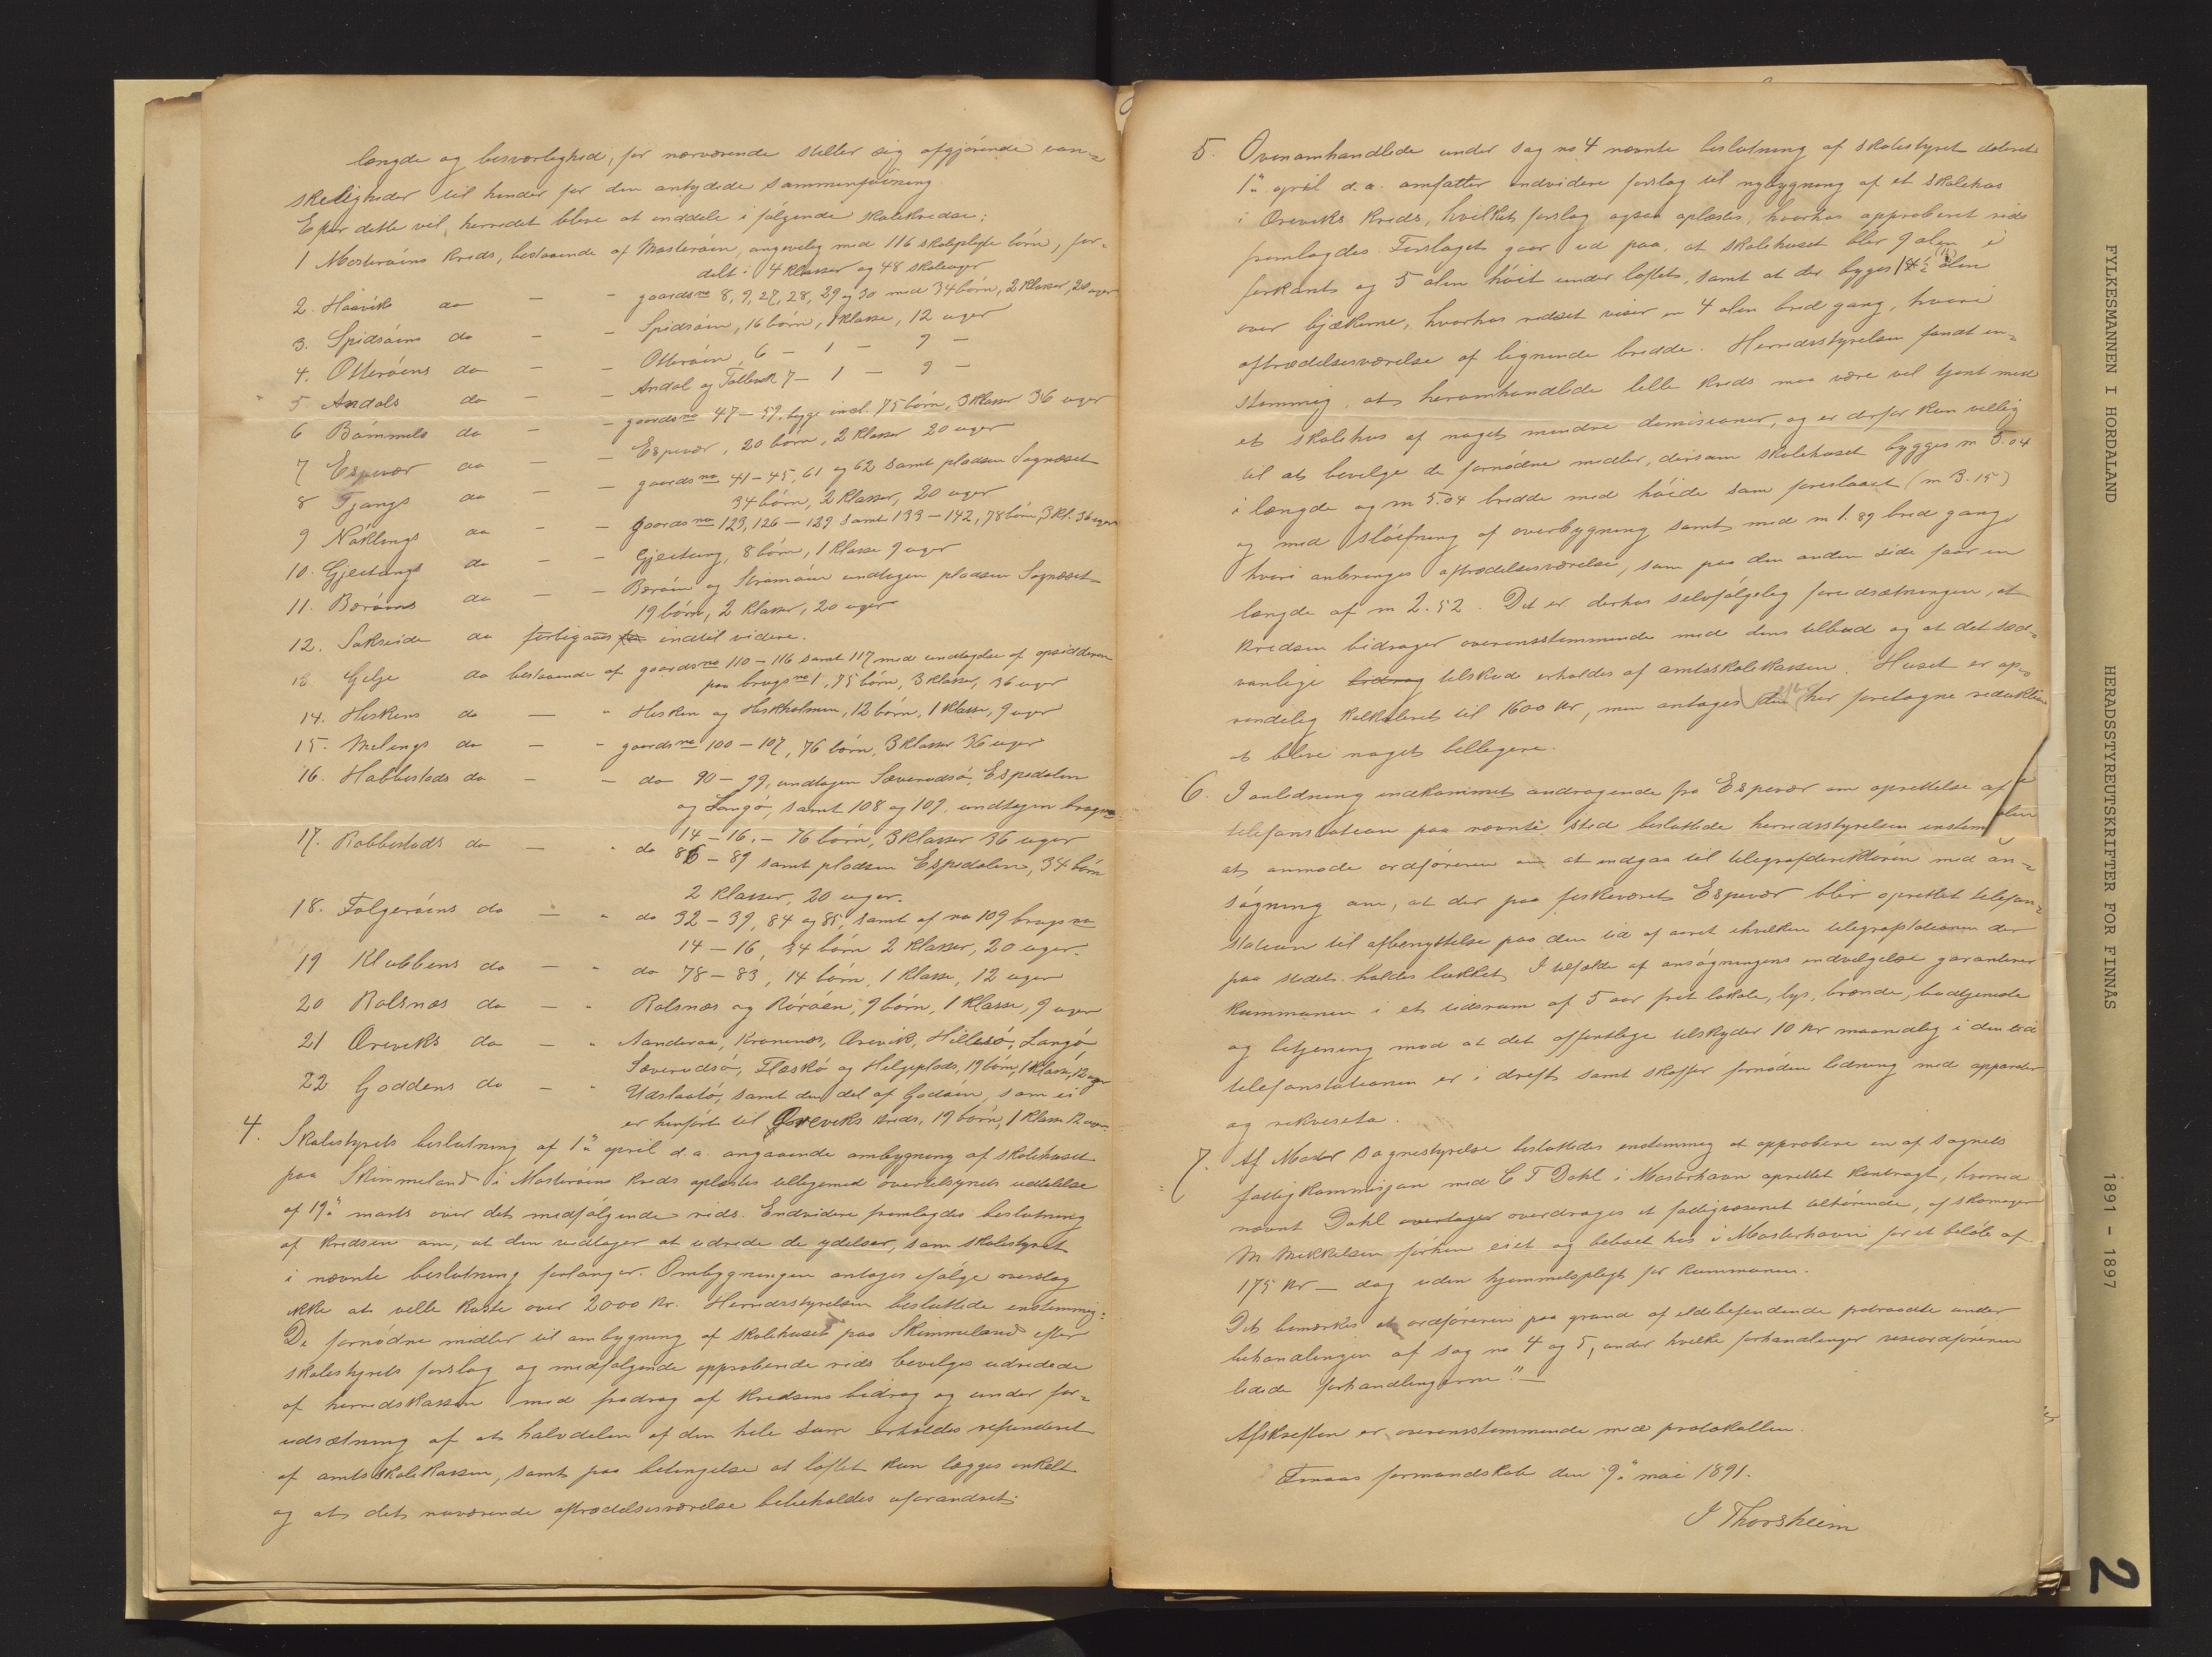 længde og besværlighed, for nærværende stiller sig afgjørende van-
skeligheder til hinder for den antydede sammenføining.
Efter dette vil herredet blive at inddele i følgende skolekredse:
1 Mosterøens kreds, bestaaende af Mosterøen, angivelig med 116 skolepligte børn, for-
delt i 4 klasser og 48 skoleuger
2. Haavik do — " gaardsno 8, 9, 27, 28, 29 og 30 med 34 børn, 2 klasser, 20 uger
3. Spidsøens do — - Spidsøen, 16 børn, 1 klasse, 12 uger
4. Otterøens do — - Otterøen, 6 — 1 — 9 —
5 Andals do — - Andal og Tollevik 7 — 1 — 9 —
6 Bømmels do — - gaardsno 47 — 59. begge incl. 75 børn, 3 klasser 36 uger
7 Espevær do — - Espevær, 20 børn, 2 klasser 20 uger
8 Tjangs do — - gaardsno 41 — 45, 61 og 62 samt pladsen Sognæset
34 børn, 2 klasser, 20 uger
9 Nøklings do — - gaardsno 123, 126 — 129 samt 133 — 142, 78 børn, 3 kl. 36 uger
10. Gjeitungs do — - Gjeitung, 8 børn, 1 klasse 9 uger
11. Børøens do — - Børøen og Strømøen undtagen pladsen Sognæset
19 børn, 2 klasser, 20 uger
12. Sakseide do forbigaaes indtil videre.
13 Gilje do bestaaende af gaardsno 110 — 116 samt 117 med undtagelse af opsidderen
paa brugsno 1, 75 børn, 3 klasser, 36 uger
14. Hiskens do — " Hisken og Hiskholmen, 12 børn, 1 klasse, 9 uger
15. Mælings do — - gaardsno 100 — 107, 76 børn, 3 klasser 36 uger
16. Habbestads do — - do 90 — 99, undtagen Søverudsø, Espedalen
og Langø, samt 108 og 109. undtagen brugsno
14 — 16. — 76 børn, 3 klasser 36 uger
17. Robbestads do — " do 86 — 89 samt pladsen Espedalen, 34 børn
2 klasser, 20 uger.
18. Folgerøens do — " do 32 — 39, 84 og 85, samt af no 109 brugsno
14 — 16, 34 børn 2 klasser, 20 uger.
19 Klubbens do — " do 78 — 83, 14 børn, 1 klasse, 12 uger
20 Rolsnæs do — " Rolsnæs og Rørøen, 9 børn, 1 klasse, 9 uger
21 Øreviks do — " Aanderaa, Kronenes, Ørevik, Hillesø, Langø
Søverudsø, Flæskø og Helgeplads, 19 børn, 1 klasse, 12 uger
22 Goddens do — " Udslaatø, samt den del af Godøen, som ei
er henført til Øreviks kreds, 19 børn, 1 klasse 12 uger
4. Skolestyrets beslutning af 1ste april d.a. angaaende ombygning af skolehuset
paa Skimmeland i Mosterøens kreds oplæstes tilligemed overtilsynets udtalelse
af 19de marts over det medfølgende rids. Endvidere fremlagdes beslutning
af kredsen om, at den vedtager at udrede de ydelser, som skolestyret
i nævnte beslutning forlanger. Ombygningen antages ifølge overslag
ikke at ville koste over 2000 kr. Herredsstyrelsen besluttede enstemmig:
De fornødne midler til ombygning af skolehuset paa Skimmeland efter
skolestyrets forslag og medfølgende approberede rids bevilges udredede
af herredskassen med fradrag af kredsens bidrag og under for-
udsætning af at halvdelen af den hele sum erholdes refunderet
af amtsskolekassen, samt paa betingelse at loftet kun lægges enkelt
og at det nuværende aftrædelsesværelse beholdes uforandret.
5. Ovenomhandlede under sag no 4 nævnte beslutning af skolestyret dateret
1ste april d.a. omfatter endvidere forslag til nybygning af et skolehus
i Øreviks kreds, hvilket forslag ogsaa oplæstes, hvorhos approberet rids
fremlagdes. Forslaget gaar ud paa, at skolehuset blir 9 alen i
firkant og 5 alen høit under loftet, samt at der bygges 1½ alen
over bjælkerne, hvorhos ridset viser en 4 alen bred gang, hvori
aftrædelsesværelse af lignende bredde. Herredsstyrelsen fandt en-
stemmig, at heromhandlede lille kreds maa være vel tjent med
et skolehus af noget mindre dimisioner, og er derfor kun villig
til at bevilge de fornødne midler, dersom skolehuset bygges m 5.04
i længde og m 5.04 bredde med høide som foreslaaet (m 3.15)
og med sløifning af overbygning samt med m 1.89 bred gang
hvori anbringes aftrædelsesværelse, som paa den anden side faar en
længde af m 2.52. Det er derhos selvfølgelig forudsætningen, at
kredsen bidrager overensstemmende med dens tilbud og at det sæd-
vanlige bidrag tilskud erholdes af amtsskolekassen. Huset er op-
rindelig kalkuleret til 1600 kr, men antages efter den her foretagne reduktion
at blive noget billigere.
6. I anledning indkommet andragende fra Espevær om oprettelse af
telefonstation paa nævnte sted besluttede herredsstyrelsen enstem
at anmode ordføreren om at indgaa til telegrafdirektøren med an-
søgning om, at der paa fiskeværet Espevær blir oprettet telefon-
station til afbenyttelse paa den tid af aaret ihvilken telegrafstationen der
paa stedet holdes lukket. I tilfælde af ansøgningens indvilgelse garanterer
kommunen i et tidsrum af 5 aar frit lokale, lys, brænde, budtjeneste
og betjening mod at det offentlige tilskyder 10 kr maanedlig i den tid
telefonstationen er i drift samt skaffer fornøden ledning med apparater
og rekvisita.
7. Af Moster sognestyrelse besluttedes enstemmig at approbere en af sognets
fattigkommisjon med C T Dahl i Mosterhavn oprettet kontragt, hvorved
nævnt Dahl overtager overdrages et fattigvæsenet tilhørende, af skomager
M Mikkelsen førhen eiet og beboet hus i Mosterhavn for et beløb af
175 kr — dog uden hjemmelspligt for kommunen.
Det bemærkes at ordføreren paa grund af ildebefindende fratraadte under
behandlingen af sag no 4 og 5, under hvilke forhandlinger viseordføreren
ledede forhandlingerne." —
Afskriften er overensstemmende med protokollen.
Finaas formandskab den 9de mai 1891.
J Thorsheim
FYLKESMANNEN I HORDALAND
HERADSSTYREUTSKRIFTER FOR FINNÅS
1891 - 1897
2